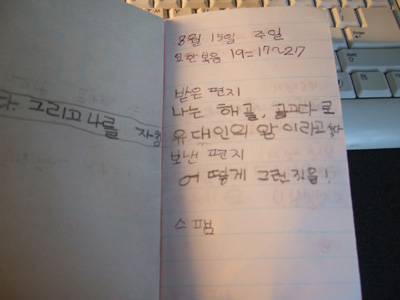 다. 그리고 나를
8월 15일 주일
요한복음 19=17~27
받은 편지
나는 해골, 골고다로
유대인의 왕 이라고
보낸 편지
어떻게 그런짓을!
스팸